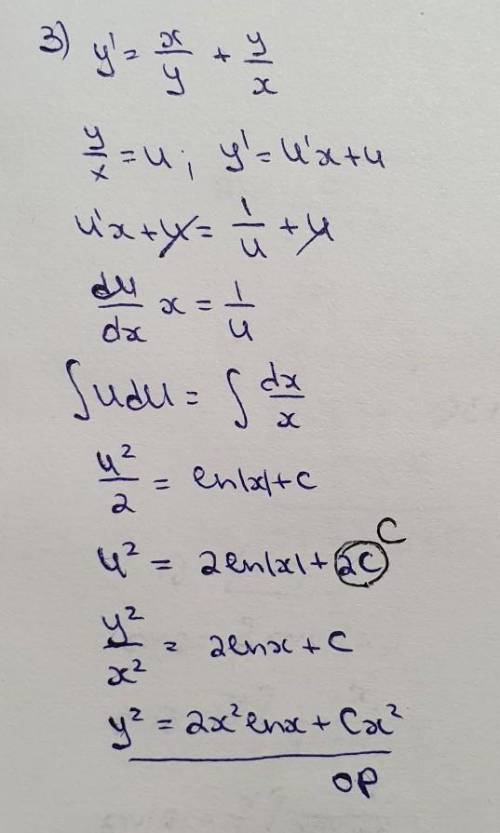 3) y' = x/y + y/x
y/x = u; y' = u'x + u
u'x + u = 1/u + u
du/dx x = 1/u
∫ u du = ∫ dx/x
u²/2 = ln|x| + C
u² = 2ln|x| + 2C C
y²/x² = 2lnx + C
y² = 2x²lnx + Cx²
OP